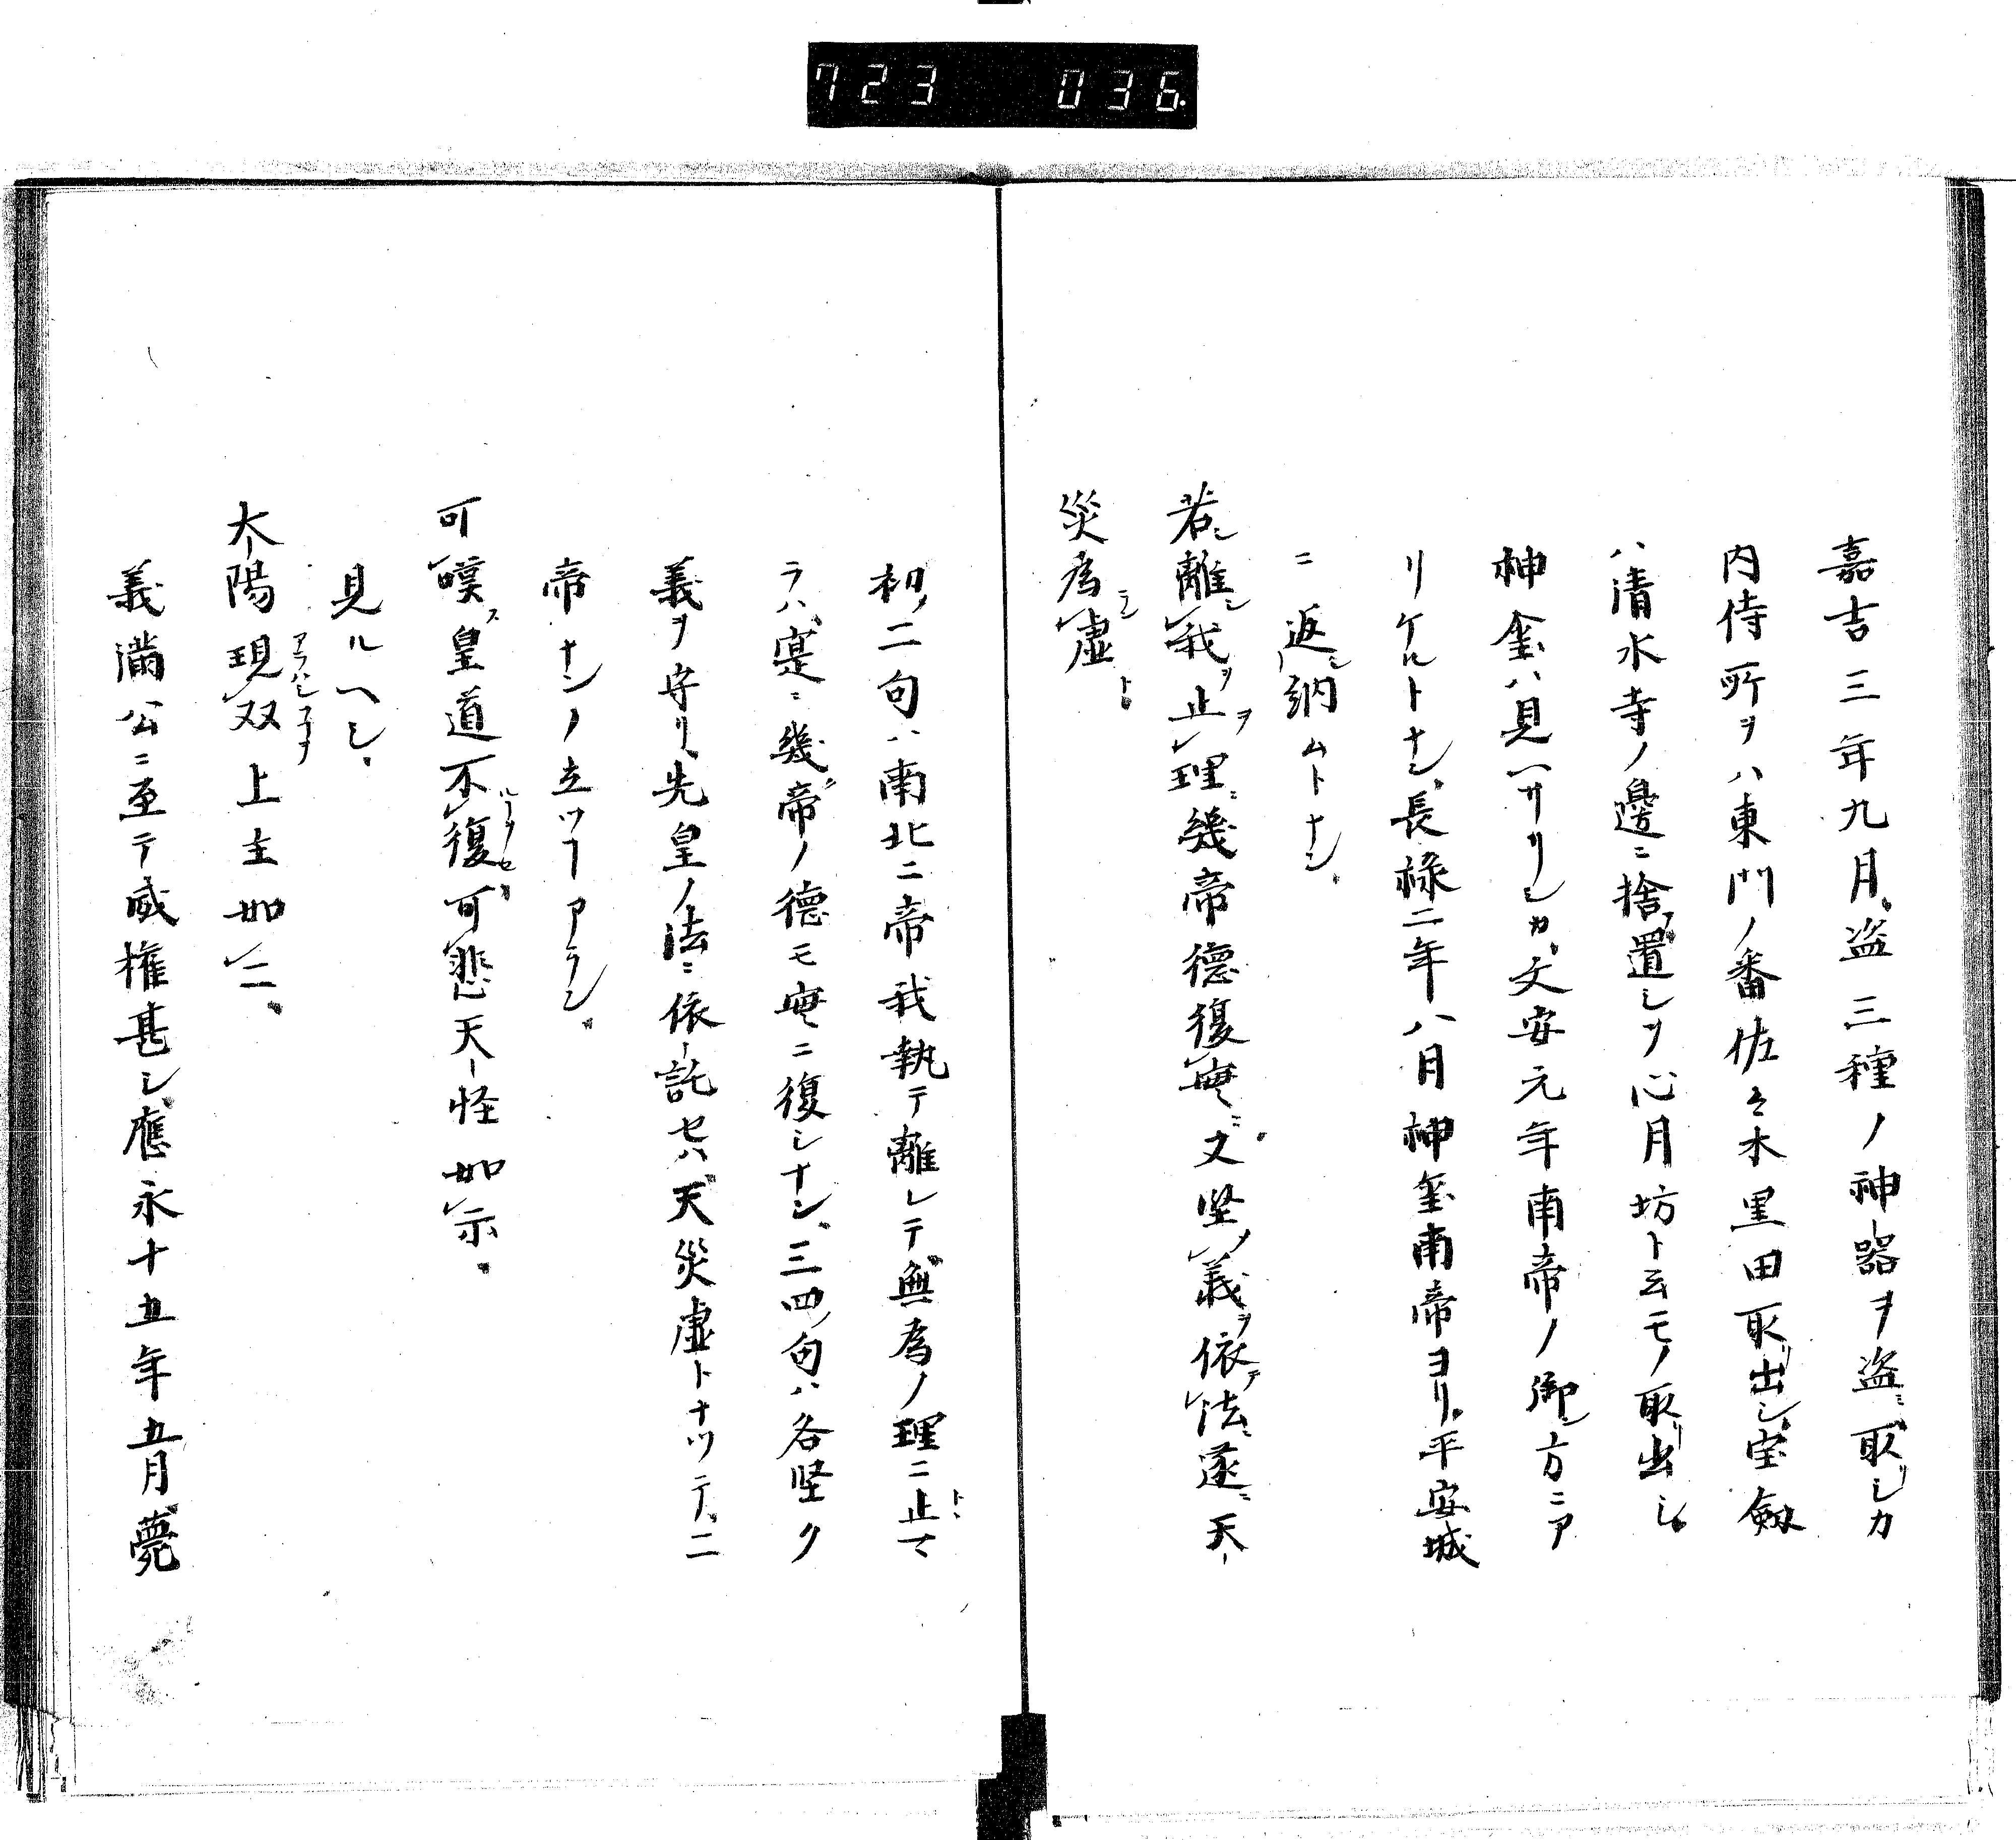 723 036
嘉吉三年九月盗三種ノ神器ヲ盗ミ取リシカ
内侍所ヲハ東門ノ番佐々木黒田取リ出シ宝劔
ハ清水寺ノ邊ニ捨置シヲ心月坊ト云モノ取リ出シ
神璽ハ見ヘサリシカ文安元年南帝ノ御方ニア
リケルトナン長禄二年八月神璽南帝ヨリ平安城
ニ返シ納ムトナン
若シ離レ我ヲ止レ理ニ幾帝德復實ニ又堅ノ義ヲ依テ法ニ遂ニ天
災為レ虚ト
初ノ二句ハ南北二帝我執テ離レテ無為ノ理ニ止マ
ラハ寔ニ幾帝ノ德モ實ニ復シナン三四ノ句ハ各堅ク
義ヲ守リ先皇ノ法ニ依託セハ天災虚トナツテ二
帝ナンノ立ツヿアラン
可嘆ス皇道不復可悲天怪如示
見ルヘシ
太陽現双上主如二
義滿公ニ至テ威権甚シ應永十五年五月薨